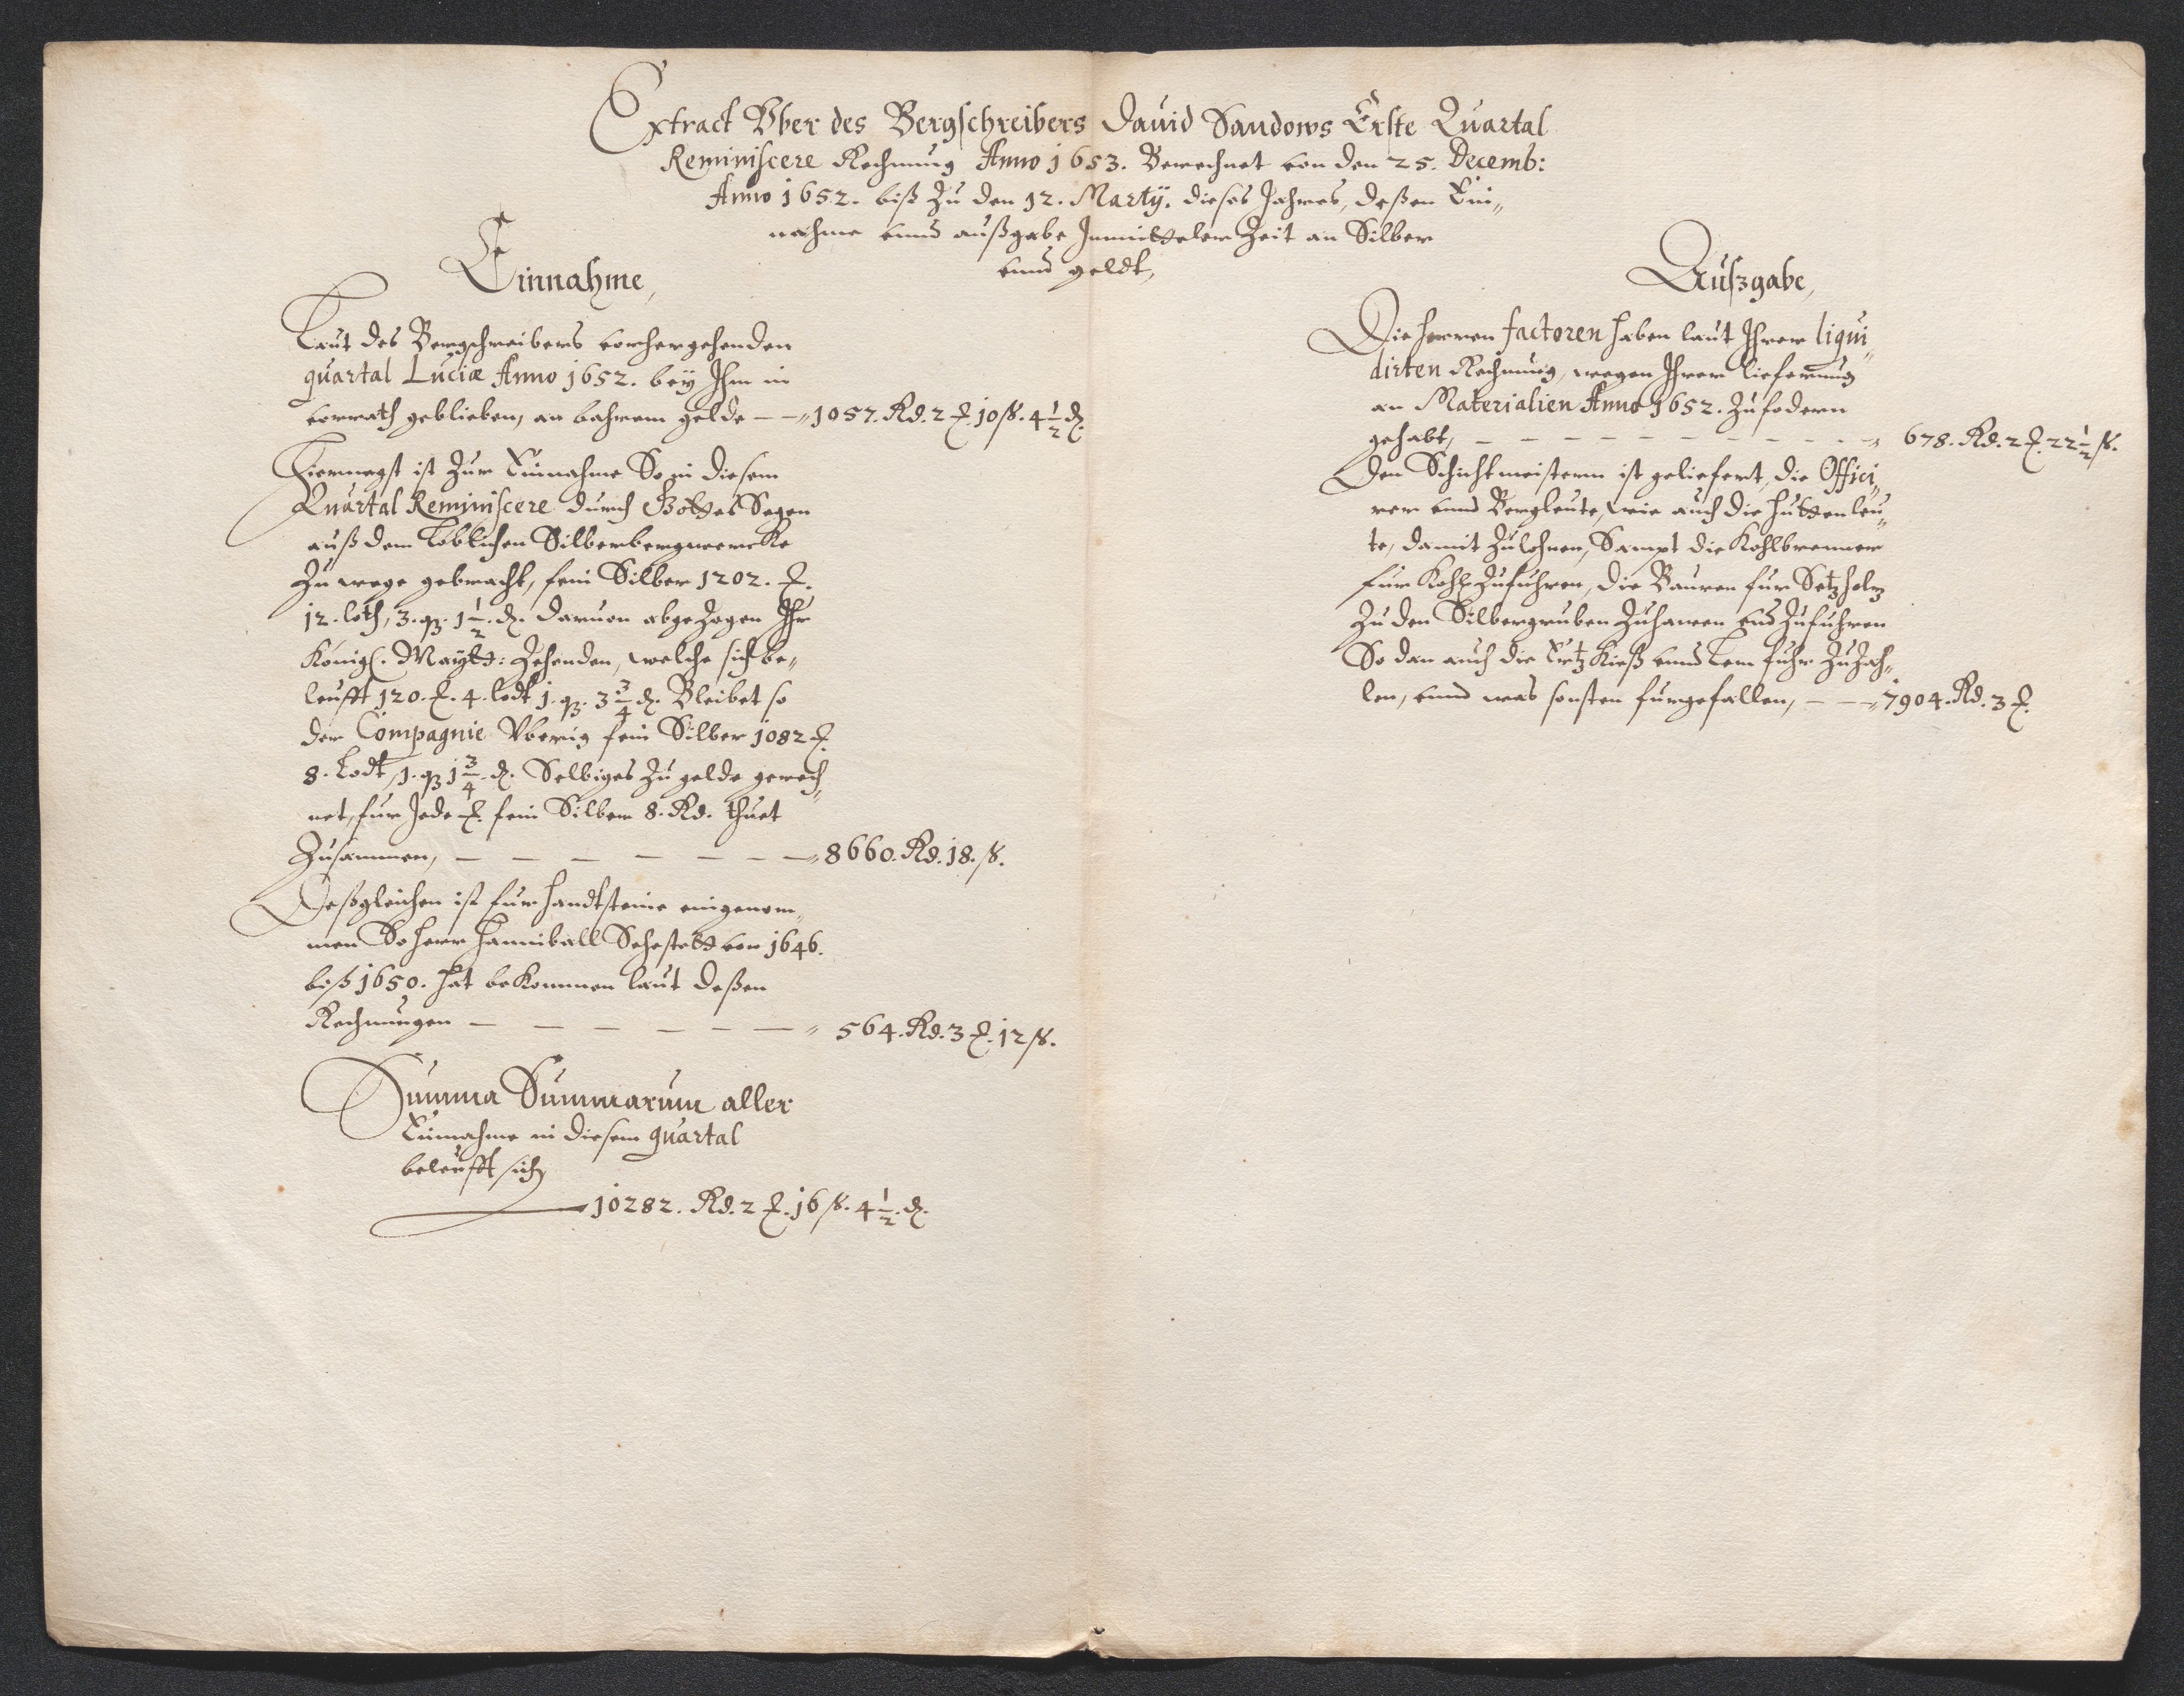 Extract Vber des Bergschreibers Dauid Sandows Erste Quartal
Reminiscere Rechnung Anno 1653. Berechnet von den 25. Decemb:
Anno 1652. biß zu den 12. Martij. dieses Jahres, deßen Ein„
nahme vnnd außgabe Inmitteler Zeit an Silber
vnnd geldt,
Einnahme,
Laut des Bergschreibers vorhergehenden
quartal Luciæ Anno 1652. bey Ihm in
vorrath geblieben, an bahrem gelde — — „ 1057. Rd. 2 ℔. 10 ß. 4 1/2 ₰.
Hiernegst ist zur Einnahme So in diesem
Quartal Reminiscere durch Gottes Segen
auß dem Löblichen Silberbergwercke
zu wege gebracht, fein Silber 1202. ℔.
12. loth, 3. q. 1 1/2. ₰. daruon abgezogen Ihr
Königl. Maytt: Zehenden, welche sich be„
leufft 120. ℔. 4. lodt 1. q. 3 3/4 ₰. Bleibet so
der Compagnie Vberig fein Silber 1082 ℔.
8. Lodt, 1. q 1 3/4. ₰. Selbiges zu gelde gerech„
net, fur Jede ℔. fein Silber 8. Rd. thuet
Zusammen, — — — — — — — „ 8660. Rd. 18. ß.
Deßgleichen ist fur handtsteine eingenom„
men So herr Hanniball Sehestett von 1646.
biß 1650. hat bekommen laut deßen
Rechnungen — — — — — — „ 564. Rd. 3 ℔. 12 ß.
Summa Summarum aller
Einnahme in diesem quartal
beleufft sich
10282. Rd. 2 ℔. 16 ß. 4 1/2. ₰.
Außgabe,
Die herren factoren haben laut Ihrer liqui„
dirten Rechnung, wegen Ihrer lieferung
an Materialien Anno 1652. zu fodern
gehabt, — — — — — — — — — — „ 678. Rd. 2 ℔. 22 1/2 ß.
Den Schichtmeistern ist geliefert, die Offici„
rer vnnd Bergleute, wie auch die Huttenleu„
te, damit zulohnen, Sampt die Kohlbrenner
fur Kohl zufuhren, die Bauren fur Setzholtz
zu den Silbergruben zuhawen vnd zufuhren
So dan auch die Ertz Kieß vnnd Lem fuhr zuzah„
len, vnnd was sonsten furgefallen, — — „ 7904. Rd. 3 ℔.